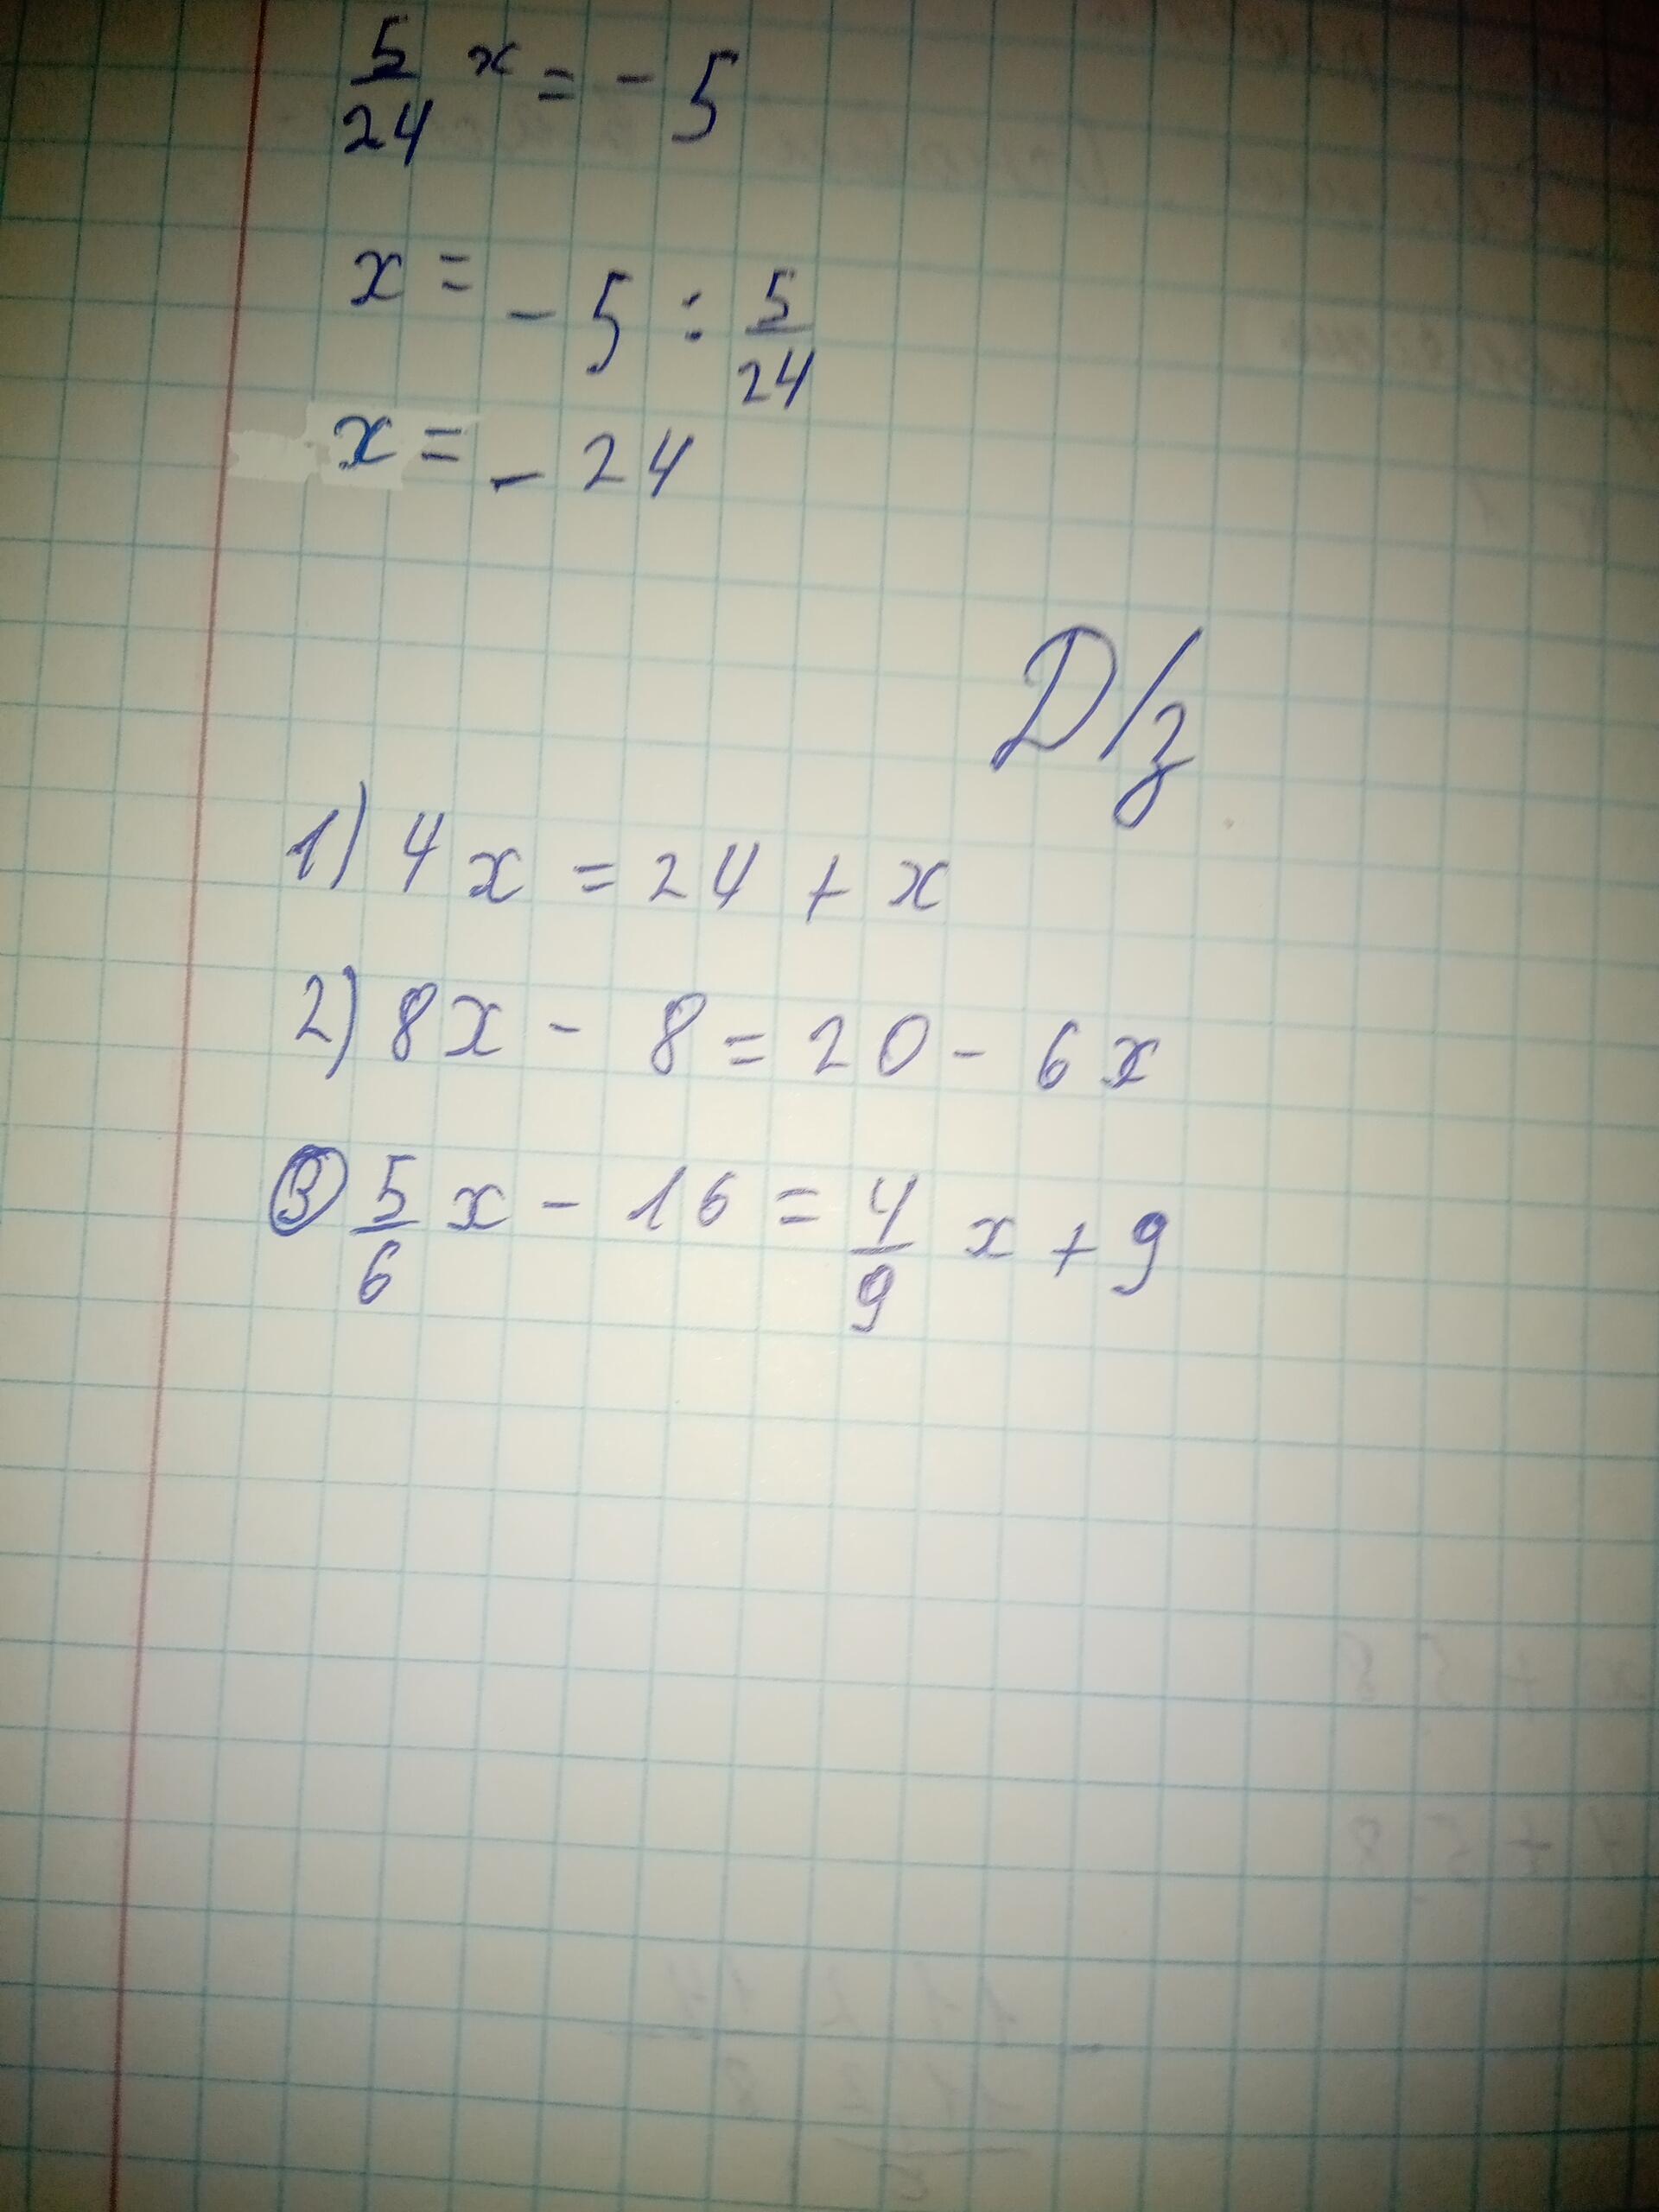 5/24 x = - 5
x = - 5 : 5/24
x = - 24
D/з
1) 4x = 24 + x
2) 8x - 8 = 20 - 6x
3) 5/6 x - 16 = 4/9 x + 9